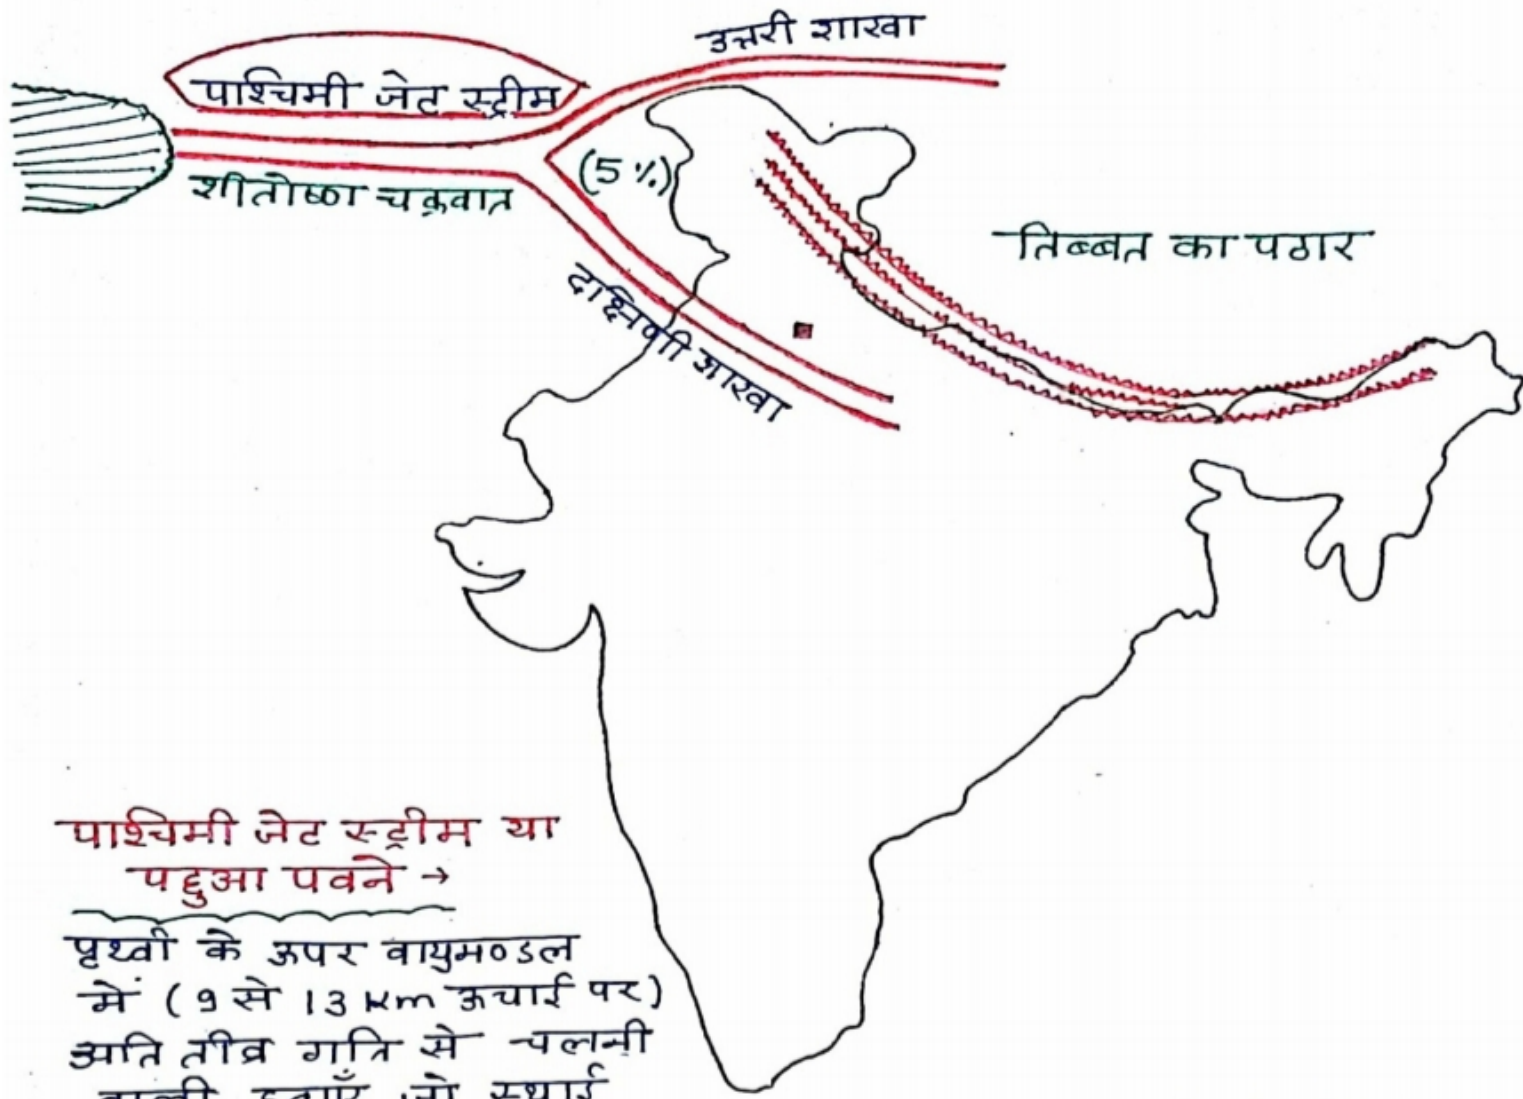 उत्तरी शाखा
पाश्चिमी जेट स्ट्रीम
(5 %)
शीतोष्ण चक्रवात
तिब्बत का पठार
दक्षिणी शाखा
पाश्चिमी जेट स्ट्रीम या
पछुआ पवने →
पृथ्वी के ऊपर वायुमण्डल
में (9 से 13 km ऊचाई पर)
अति तीव्र गति से चलनी
वाली हवाएँ जो स्थाई